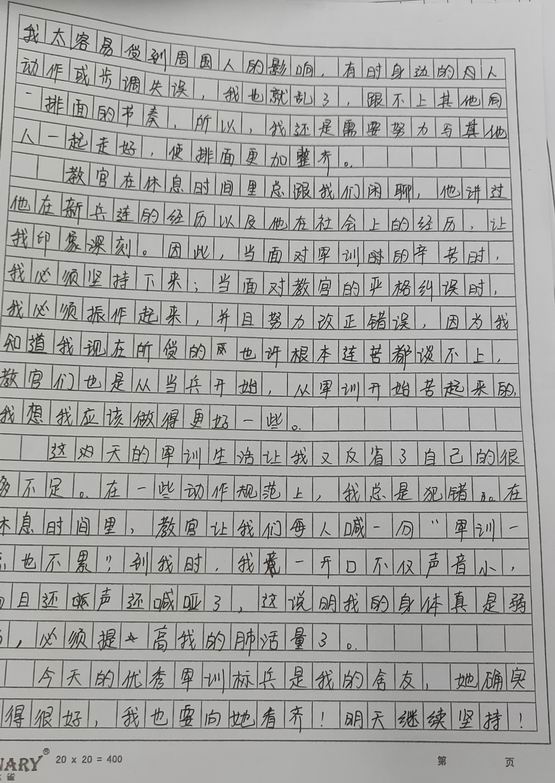 我太容易受到周围人的影响，有时身边的人
动作或步调失误，我也就乱了，跟不上其他同
一排面的节奏，所以，我还是需要努力与其他
人一起走好，使排面更加整齐。
教官在休息时间里总跟我们闲聊，他讲过
他在新兵连的经历以及他在社会上的经历，让
我印象深刻。因此，当面对军训时的辛苦时，
我必须坚持下来；当面对教官的严格纠误时，
我必须振作起来，并且努力改正错误，因为我
知道我现在所受的也许根本连苦都谈不上，
教官们也是从当兵开始，从军训开始苦起来的，
我想我应该做得更好一些。
这两天的军训生活让我又反省了自己的很
多不足。在一些动作规范上，我总是犯错。在
休息时间里，教官让我们每人喊一分"军训一
点也不累"到我时，我一开口不仅声音小，
而且还喊声还喊哑了，这说明我的身体真是弱
，必须提高我的肺活量了。
今天的优秀军训标兵是我的舍友，她确实
得很好，我也要向她看齐！明天继续坚持！
NARY® 20 x 20 = 400 第 页